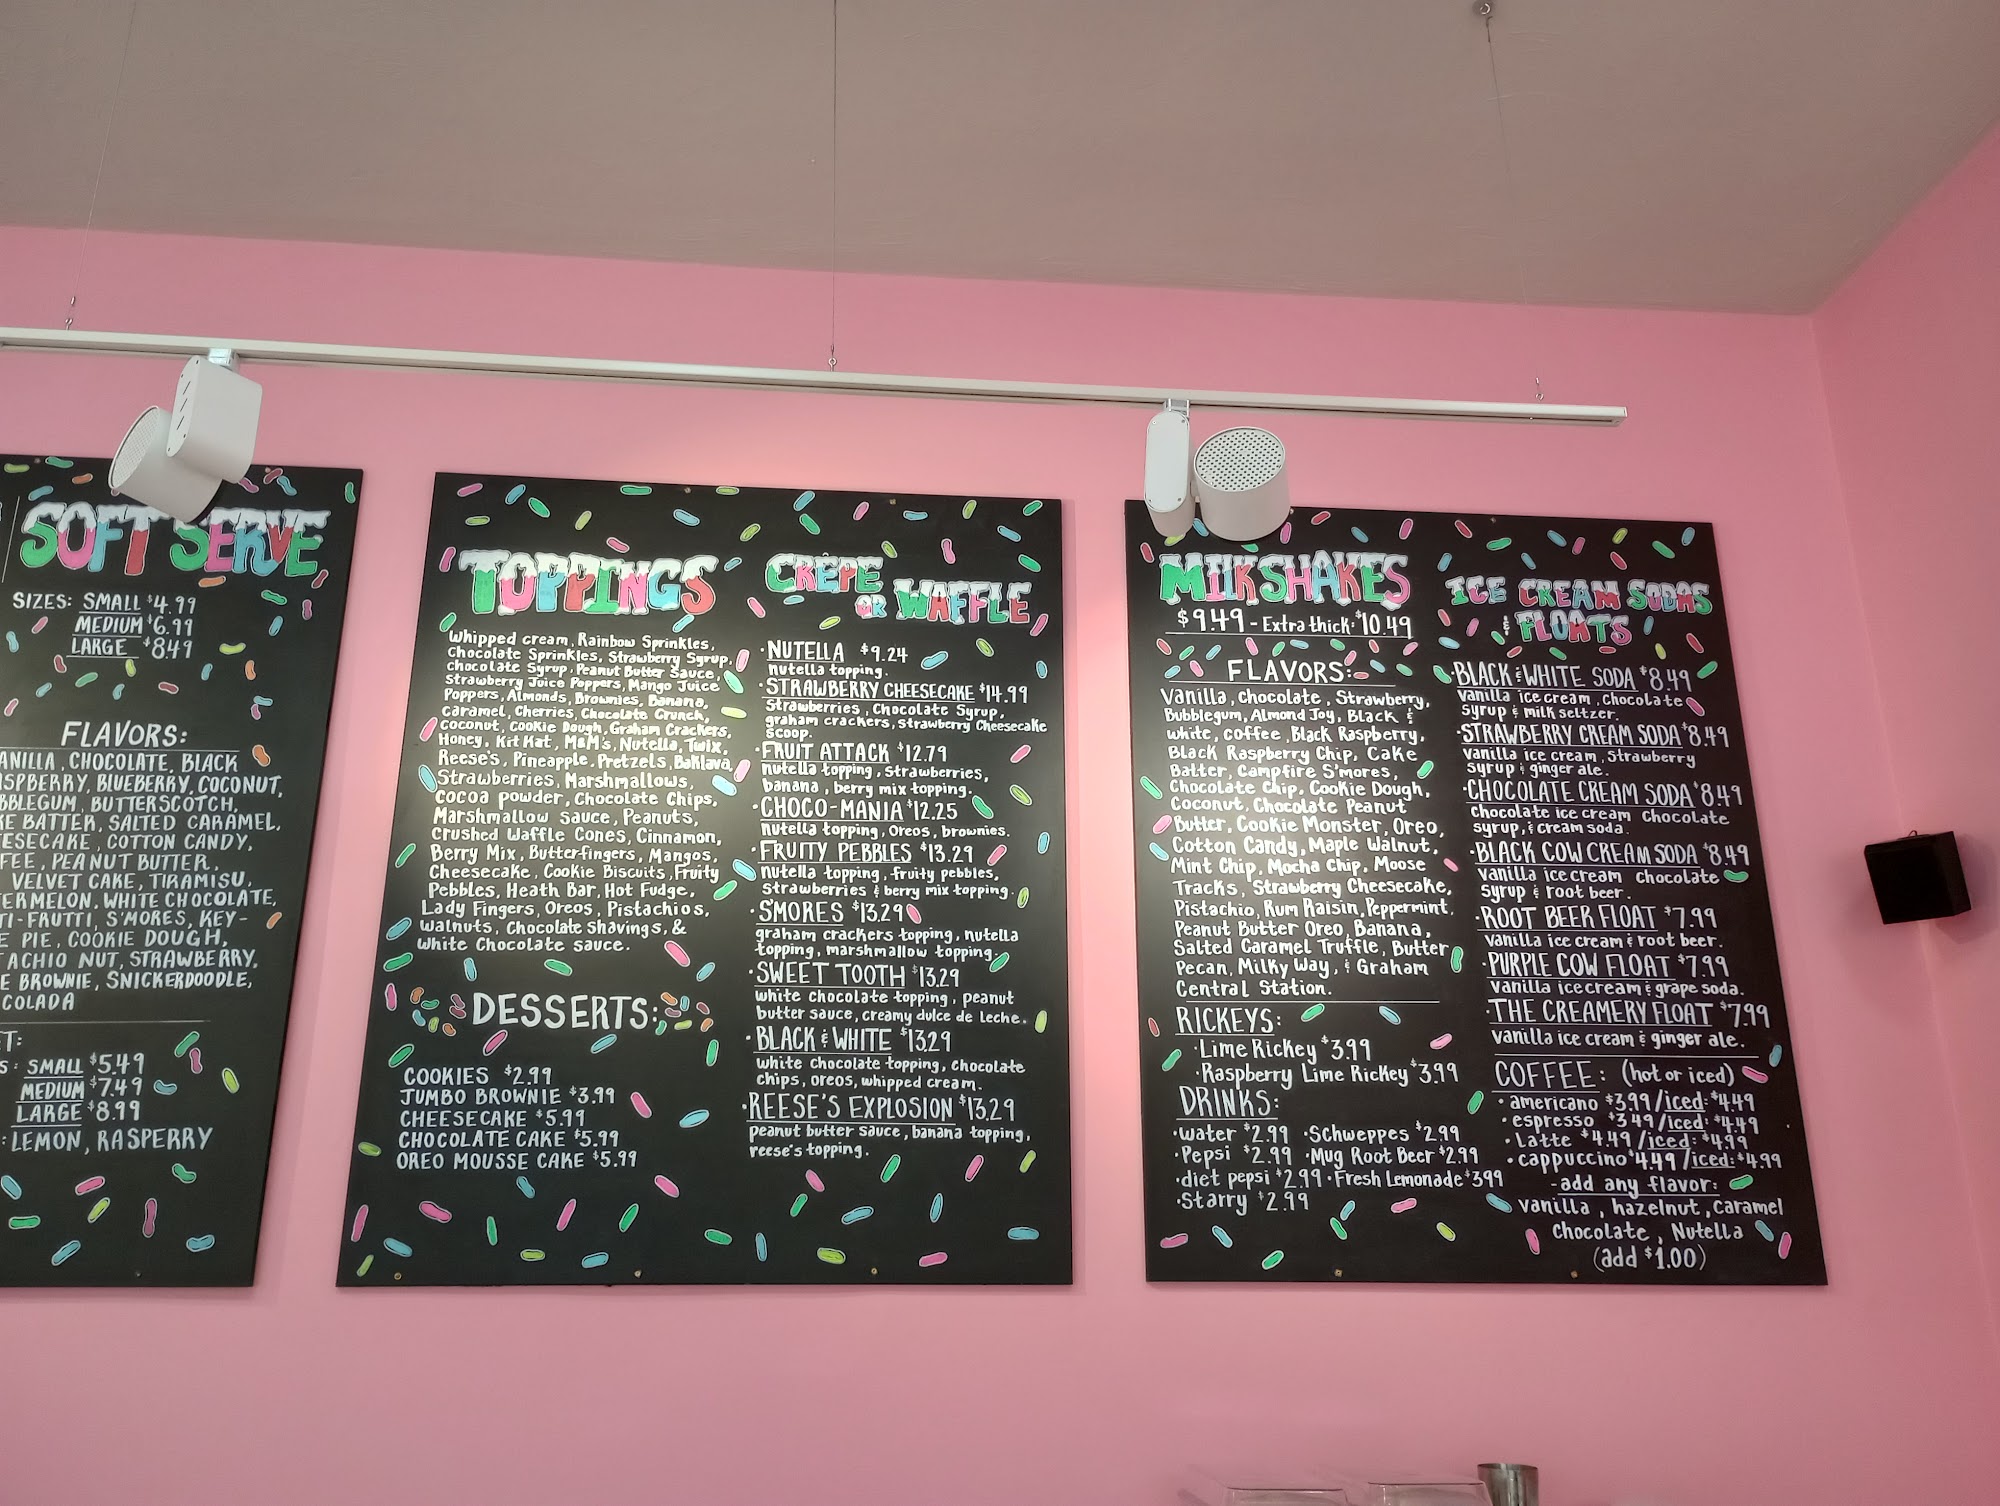 SOFT SERVE
SIZES: SMALL $4.99
MEDIUM $6.99
LARGE $8.49
FLAVORS:
CHOCOLATE, BLACK
BLUEBERRY, COCONUT,
BUTTERSCOTCH,
BATTER, SALTED CARAMEL,
COTTON CANDY,
PEANUT BUTTER,
VELVET CAKE, TIRAMISU,
WHITE CHOCOLATE,
S'MORES, KEY-
PIE, COOKIE DOUGH,
NUT, STRAWBERRY,
BROWNIE, SNICKERDOODLE,
COLADA
SMALL $5.49
MEDIUM $7.49
LARGE $8.99
: LEMON, RASPERRY
TOPPINGS
Whipped cream, Rainbow Sprinkles,
Chocolate Sprinkles, Strawberry Syrup,
Chocolate Syrup, Peanut Butter Sauce,
Strawberry Juice Poppers, Mango Juice
Poppers, Almonds, Brownies, Banana,
Caramel, Cherries, Chocolate Crunch,
Coconut, Cookie Dough, Graham Crackers,
Honey, Kit Kat, M&M's, Nutella, Twix,
Reese's, Pineapple, Pretzels, Baklava,
Strawberries, Marshmallows,
Cocoa powder, Chocolate Chips,
Marshmallow Sauce, Peanuts,
Crushed Waffle Cones, Cinnamon,
Berry Mix, Butterfingers, Mangos,
Cheesecake, Cookie Biscuits, Fruity
Pebbles, Heath Bar, Hot Fudge,
Lady Fingers, Oreos, Pistachios,
Walnuts, Chocolate Shavings, &
White Chocolate sauce.
DESSERTS:
COOKIES $2.99
JUMBO BROWNIE $3.99
CHEESECAKE $5.99
CHOCOLATE CAKE $5.99
OREO MOUSSE CAKE $5.99
CRÊPE
OR WAFFLE
·NUTELLA $9.24
nutella topping.
·STRAWBERRY CHEESECAKE $14.99
Strawberries, Chocolate Syrup,
graham crackers, Strawberry Cheesecake
Scoop.
·FRUIT ATTACK $12.79
nutella topping, strawberries,
banana, berry mix topping.
·CHOCO-MANIA $12.25
nutella topping, Oreos, brownies.
·FRUITY PEBBLES $13.29
nutella topping, fruity pebbles,
strawberries & berry mix topping.
·S'MORES $13.29
graham crackers topping, nutella
topping, marshmallow topping.
·SWEET TOOTH $13.29
white chocolate topping, peanut
butter sauce, creamy dulce de leche.
·BLACK & WHITE $13.29
white chocolate topping, chocolate
chips, oreos, whipped cream.
·REESE'S EXPLOSION $13.29
peanut butter sauce, banana topping,
reese's topping.
MILKSHAKES
$9.49 - Extra thick: $10.49
FLAVORS:
Vanilla, Chocolate, Strawberry,
Bubblegum, Almond Joy, Black &
White, Coffee, Black Raspberry,
Black Raspberry Chip, Cake
Batter, Campfire S'mores,
Chocolate Chip, Cookie Dough,
Coconut, Chocolate Peanut
Butter, Cookie Monster, Oreo,
Cotton Candy, Maple Walnut,
Mint Chip, Mocha Chip, Moose
Tracks, Strawberry Cheesecake,
Pistachio, Rum Raisin, Peppermint,
Peanut Butter Oreo, Banana,
Salted Caramel Truffle, Butter
Pecan, Milky Way, & Graham
Central Station.
RICKEYS:
·Lime Rickey $3.99
·Raspberry Lime Rickey $3.99
DRINKS:
·water $2.99 ·Schweppes $2.99
·Pepsi $2.99 ·Mug Root Beer $2.99
·diet pepsi $2.99 ·Fresh Lemonade $3.99
·Starry $2.99
ICE CREAM SODAS
& FLOATS
·BLACK & WHITE SODA $8.49
vanilla ice cream, Chocolate
Syrup & milk seltzer.
·STRAWBERRY CREAM SODA $8.49
vanilla ice cream, Strawberry
Syrup & ginger ale.
·CHOCOLATE CREAM SODA $8.49
chocolate ice cream Chocolate
syrup, & cream soda.
·BLACK COW CREAM SODA $8.49
vanilla ice cream chocolate
syrup & root beer.
·ROOT BEER FLOAT $7.99
vanilla ice cream & root beer.
·PURPLE COW FLOAT $7.99
vanilla ice cream & grape soda.
·THE CREAMERY FLOAT $7.99
vanilla ice cream & ginger ale.
COFFEE: (hot or iced)
·americano $3.99/iced: $4.49
·espresso $3.49/iced: $4.49
·Latte $4.49/iced: $4.99
·cappuccino $4.49/iced: $4.99
-add any flavor:
vanilla, hazelnut, caramel
Chocolate, Nutella
(add $1.00)